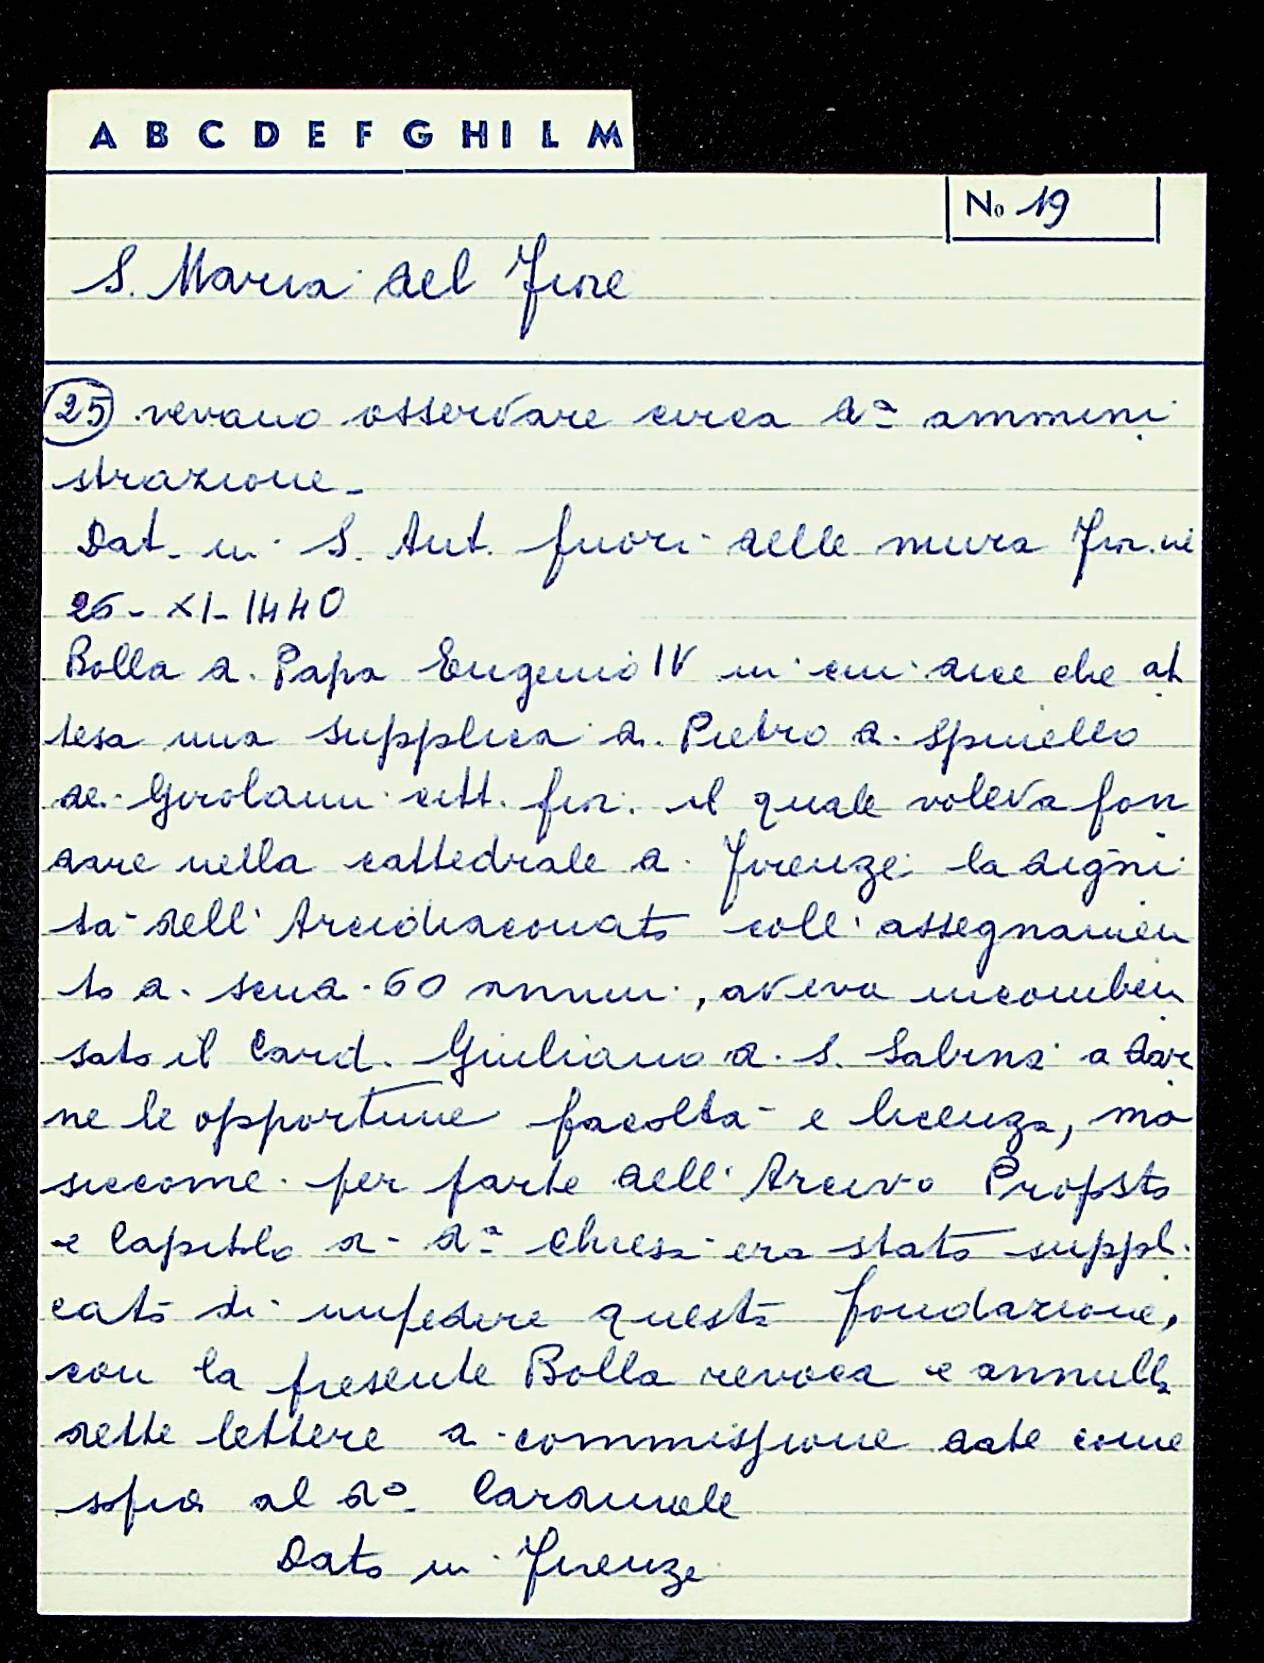 A B C D E F G H I L M
No 19
S. Maria del Fiore
25 vevano osservare circa dª ammini
strazione_
Dat. in S. Ant. fuori delle mura Fior.ne
26- XI- 1440
Bolla d. Papa Eugenio IV in cui dice che at
tesa una supplica di Pietro d. Spinello
de. Girolami citt. fior. il quale voleva fon
dare nella cattedrale d. Firenze la digni
tà dell' Arcidiaconato coll' assegnamen
to d. scud. 60 annui, aveva incomben
sato il Card. Giuliano d. S. Sabina a dar
ne le opportune facoltà e licenza, ma
siccome per parte dell' Arciv.o Propsto
e Capitolo d. dª chiesa era stato suppl.
cato di impedire questa fondazione,
con la presente Bolla revoca e annulla
dette lettere d. commissione date come
sopra al dº Cardinale
Dato in Firenze